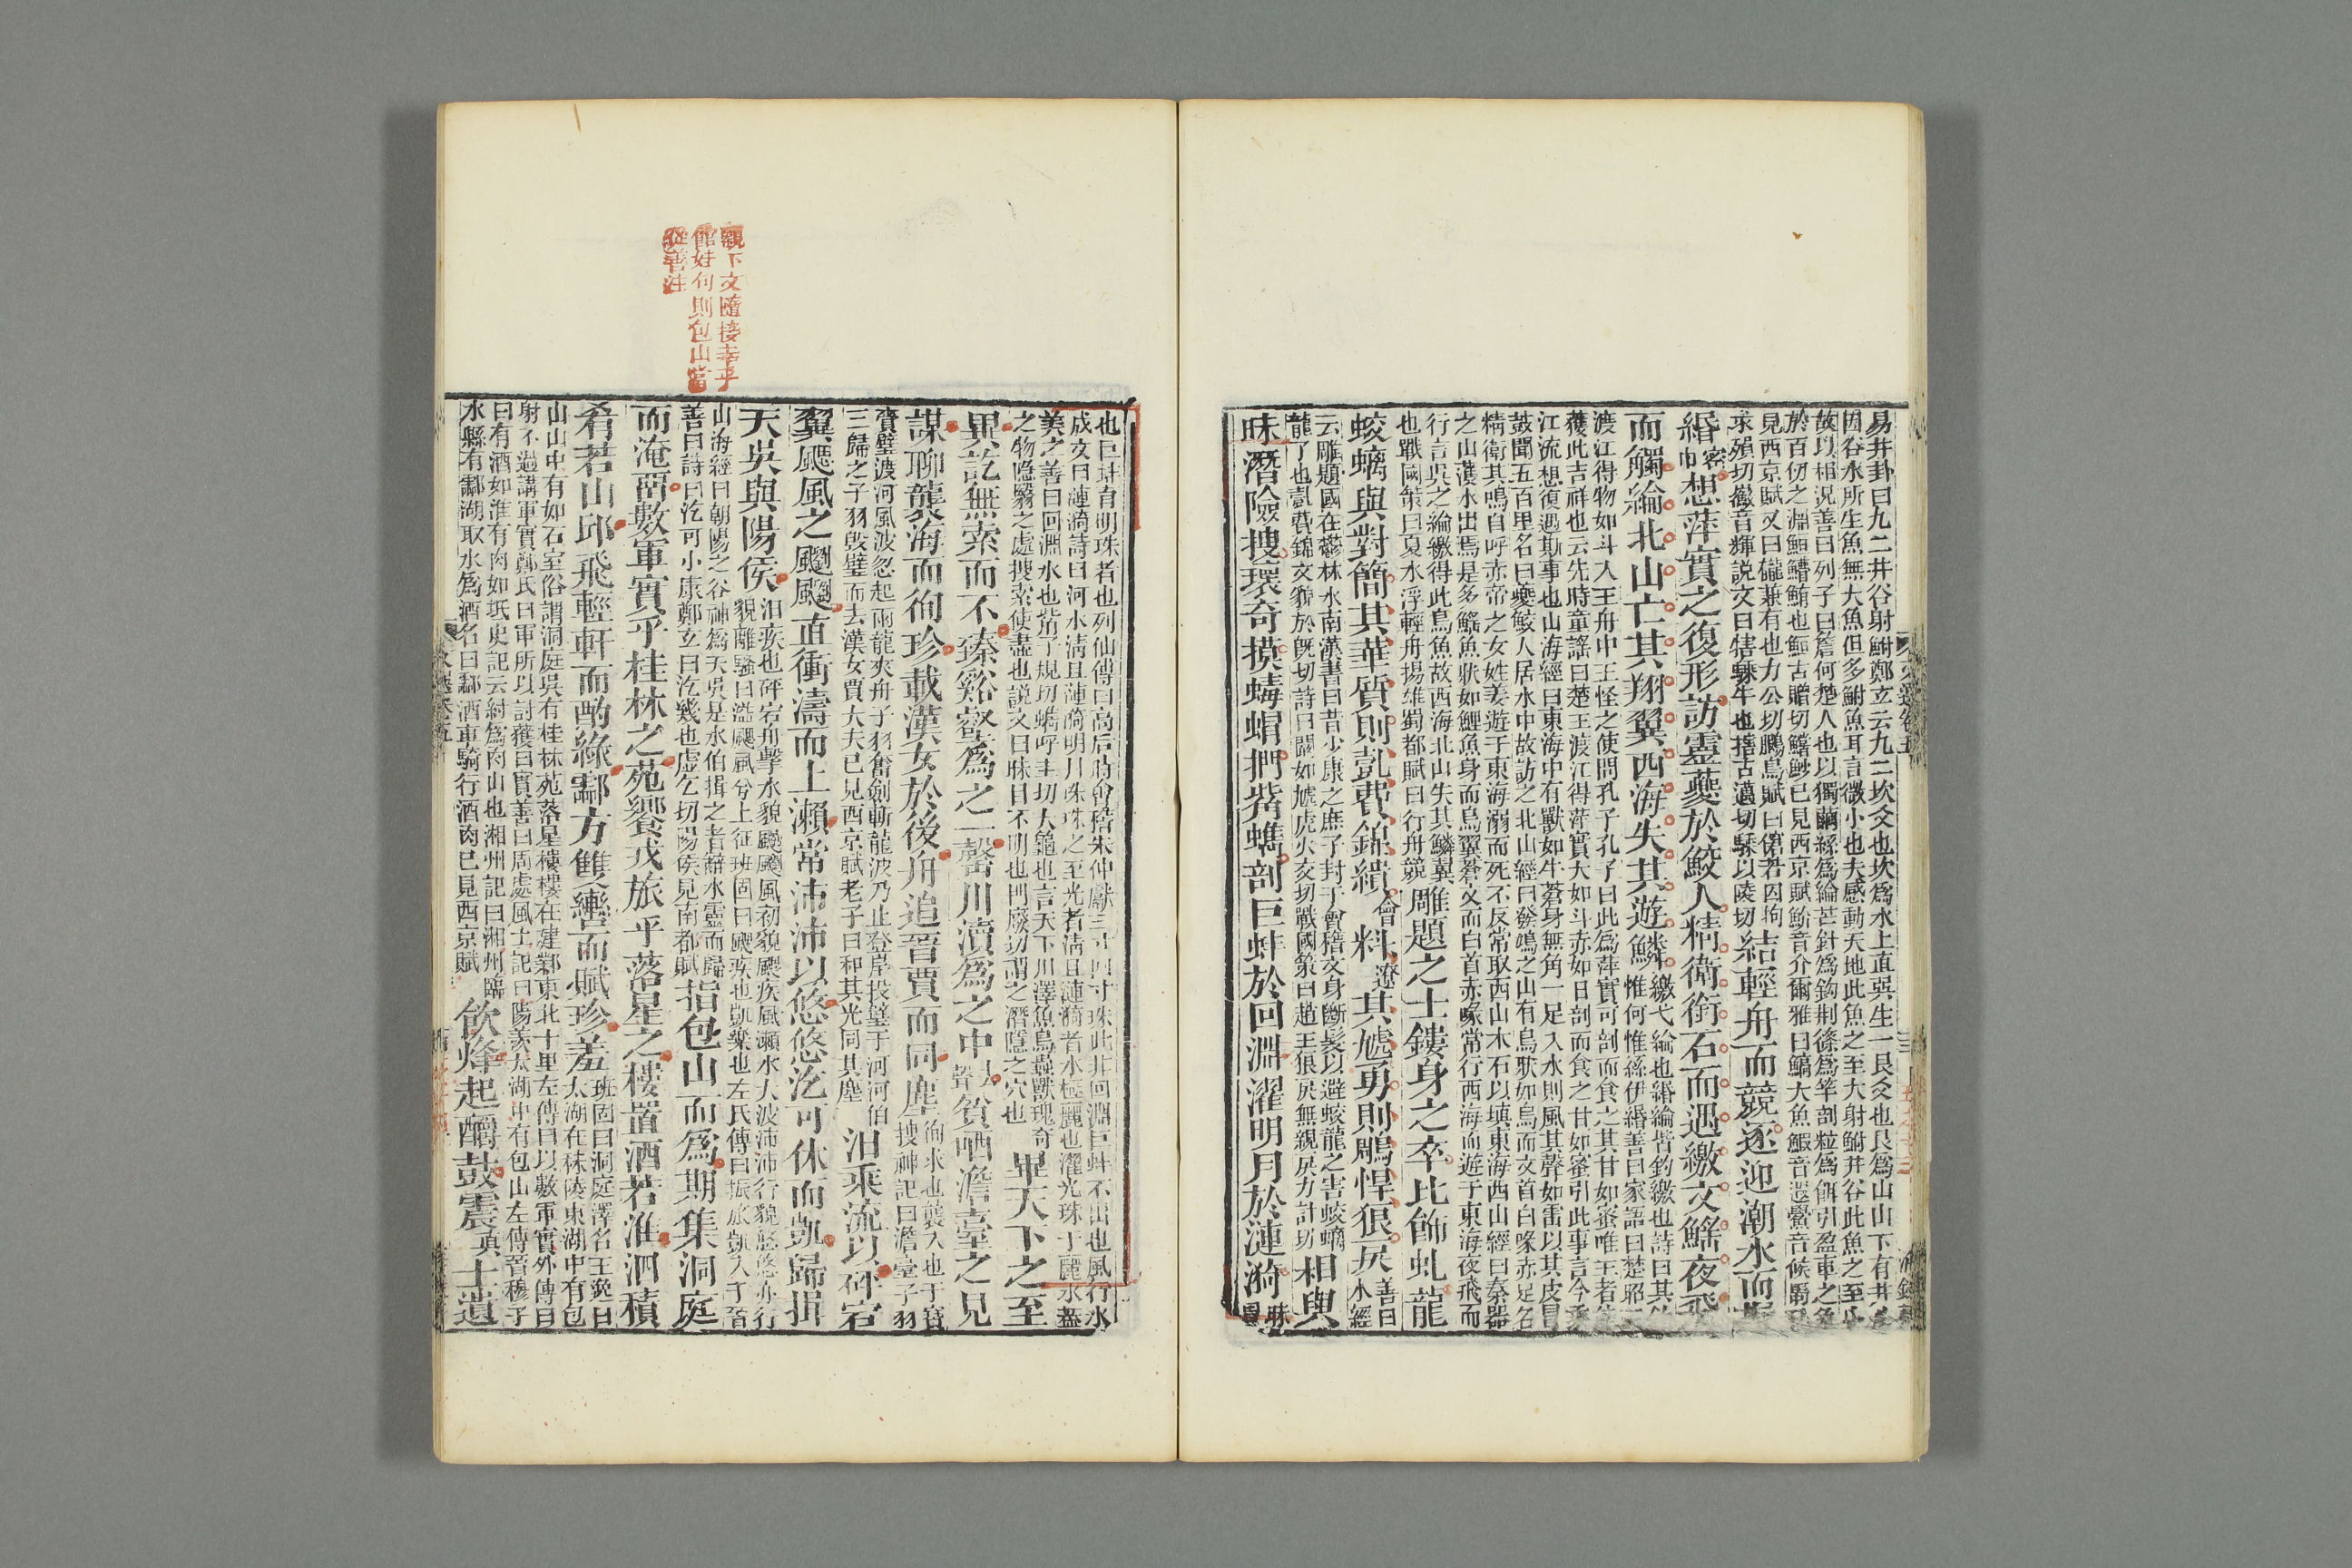 易井卦曰九二井谷射鮒鄭玄云九二坎爻也坎爲水上直巽生一艮爻也艮爲山山下有井必
因谷水所生魚無大魚但多鮒魚耳言微小也夫感動天地此魚之至大射鮒井谷此魚之至小
故以相況善曰列子曰詹何楚人也以獨繭絲爲綸芒針爲鈎荆篠爲竿剖粒爲餌引盈車之魚
於百仞之淵䱎䲛鮪也䱎古贈切鱨魦已見西京賦魪音介爾雅曰鰝大魚鰕音遐鱟音候罱
見西京賦又曰儱兼有也力公切鵩鳥賦曰僒若囚拘
求殞切徽音輝說文曰犗騬牛也犗古邁切騬以陵切結輕舟而競逐迎潮水而振
緡密巾想萍實之復形訪靈夔於鮫人精衛銜石而遇繳文鰩夜飛
而觸綸北山亡其翔翼西海失其遊鱗繳弋綸也緡綸皆釣繳也詩曰其釣
惟何惟絲伊緡善曰家語曰楚昭王
渡江得物如斗入王舟中王怪之使問孔子孔子曰此爲萍實可剖而食之其甘如蜜唯王者能
獲此吉祥也云先時童謠曰楚王渡江得萍實大如斗赤如日剖而食之甘如蜜引此事言今乘
江流想復遇斯事也山海經曰東海中有獸如牛蒼身無角一足入水則風其聲如雷以其皮冒
鼓聞五百里名曰夔鮫人居水中故訪之北山經曰發鳩之山有鳥狀如烏而文首白喙赤足名
精衛其鳴自呼赤帝之女姓姜遊于東海溺而死不反常取西山木石以填東海西山經曰秦器
之山濩水出焉是多鰩魚狀如鯉魚身而鳥翼蒼文而白首赤喙常行西海而遊于東海夜飛而
行言吳之綸繳得此鳥魚故西海北山失其鱗翼
也戰國策曰夏水浮輕舟揚雄蜀都賦曰行舟競雕題之士鏤身之卒比飾虬龍
蛟螭與對簡其華質則亄費錦繢會料遼其虓勇則鵰悍狼戾善曰水經
云雕題國在鬱林水南漢書曰昔少康之庶子封于會稽文身斷髮以避蛟龍之害蛟螭
龍了也亄費錦文貌於旣切詩曰闞如虓虎火交切戰國策曰趙王狼戾無親戾力計切相與
昧潛險搜瓌奇摸蝳蝐捫觜蠵剖巨蚌於回淵濯明月於漣漪昧冒
也巨蚌有明珠者也列仙傳曰高后時會稽朱仲獻三寸四寸珠此井回淵巨蚌不出也風行水
成文曰漣漪詩曰河水清且漣漪明月珠珠之至光者清且漣漪者水極麗也濯光珠于麗水蓋
美之善曰回淵水也觜子規切蠵呼圭切大龜也言天下川澤魚鳥蟲獸瑰奇
之物隱翳之處搜索使盡也説文曰昧目不明也門廢切謂之潛隱之穴也畢天下之至
異訖無索而不臻谿壑爲之一罄川瀆爲之中貧哂澹臺之見
謀聊襲海而徇珍載漢女於後舟追晉賈而同塵徇求也襲入也干寶
搜神記曰澹臺子羽
賫璧渡河風波忽起兩龍夾舟子羽奮劍斬龍波乃止登岸投璧于河河伯
三歸之子羽毁璧而去漢女賈大夫已見西京賦老子曰和其光同其塵汨乘流以砰宕
翼颸風之䬙䬙直衝濤而上瀨常沛沛以悠悠汔可休而凱歸揖
天吳與陽侯汨疾也砰宕舟擊水貌䬙䬙風初貌颸疾風瀨水大波沛沛行貌悠悠亦行
貌離騷曰溘颸風兮上征班固曰颸疾也凱樂也左氏傳曰振旅凱入于晉
山海經曰朝陽之谷神爲天吳是水伯揖之者辭水靈而歸
善曰詩曰汔可小康鄭玄曰汔幾也虛乞切陽侯見南都賦指包山而爲期集洞庭
而淹留數軍實乎桂林之苑饗戎旅乎落星之樓置酒若淮泗積
肴若山邱飛輕軒而酌綠酃方雙轡而賦珍羞班固曰洞庭澤名王逸曰
太湖在秣陵東湖中有包
山山中有如石室俗謂洞庭吳有桂林苑落星樓樓在建鄴東北十里左傳曰以數軍實外傳曰
射不過講軍實鄭氏曰軍所以討獲曰實善曰周處風土記曰陽羨太湖中有包山左傳晉穆子
曰有酒如淮有肉如坻史記云紂爲肉山也湘州記曰湘州臨
水縣有酃湖取水爲酒名曰酃酒車騎行酒肉已見西京賦飲烽起釂鼓震士遺
觀下文隨接幸乎
館娃句則包山當
從善注